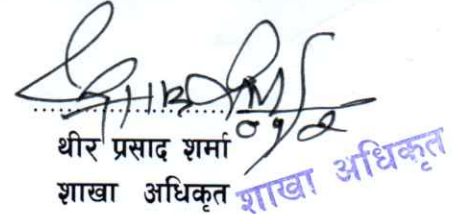 थीर प्रसाद शर्मा
शाखा अधिकृत शाखा अधिकृत